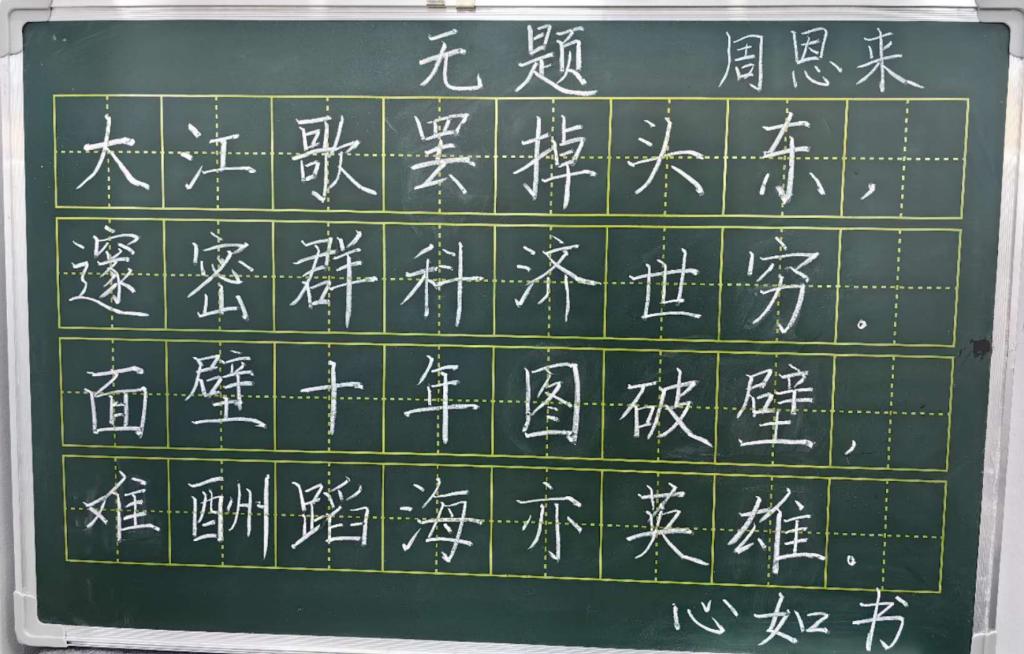 无题 周恩来
大江歌罢掉头东，
邃密群科济世穷。
面壁十年图破壁，
难酬蹈海亦英雄。
心如书